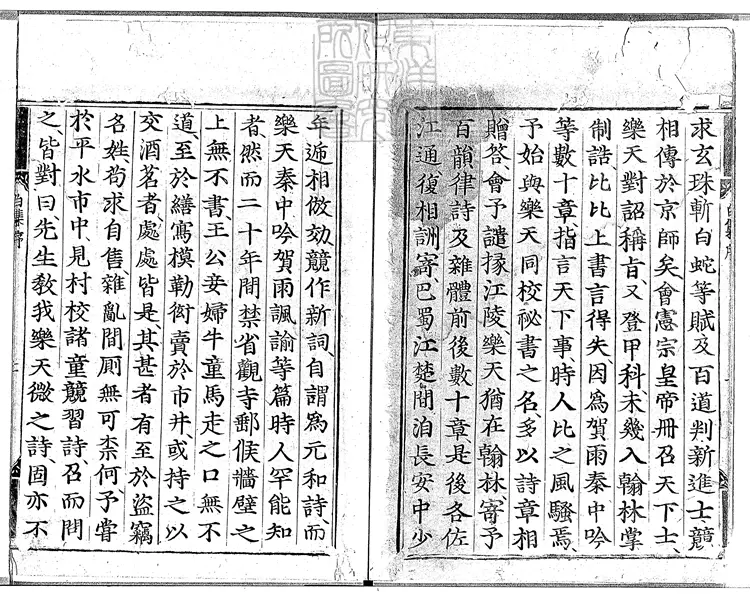 求玄珠斬白蛇等賦及百道判新進士競
相傳於京師矣會憲宗皇帝冊召天下士、
樂天對詔稱旨又登甲科未幾入翰林掌
制誥、比比上書言得失、因爲賀雨秦中吟
等數十章、指言天下事、時人比之風騷焉、
予始與樂天同校祕書之名、多以詩章相
贈答、會予譴掾江陵、樂天猶在翰林、寄予
百韻律詩及雜體前後數十章、是後各佐
江通復相詶寄、巴蜀江楚間洎長安中少
年遞相倣効競作新詞、自謂爲元和詩、而
樂天秦中吟賀雨諷諭等篇時人罕能知
者然而二十年間禁省觀寺郵候牆壁之
上無不書、王公妾婦牛童馬走之口無不
道、至於繕寫模勒衒賣於市井、或持之以
交酒茗者、處處皆是、其甚者有至於盜竊
名姓、苟求自售、雜亂間厠無可柰何、予嘗
於平水市中、見村校諸童競習詩、召而問
之、皆對曰、先生教我樂天微之詩、固亦不
白集序